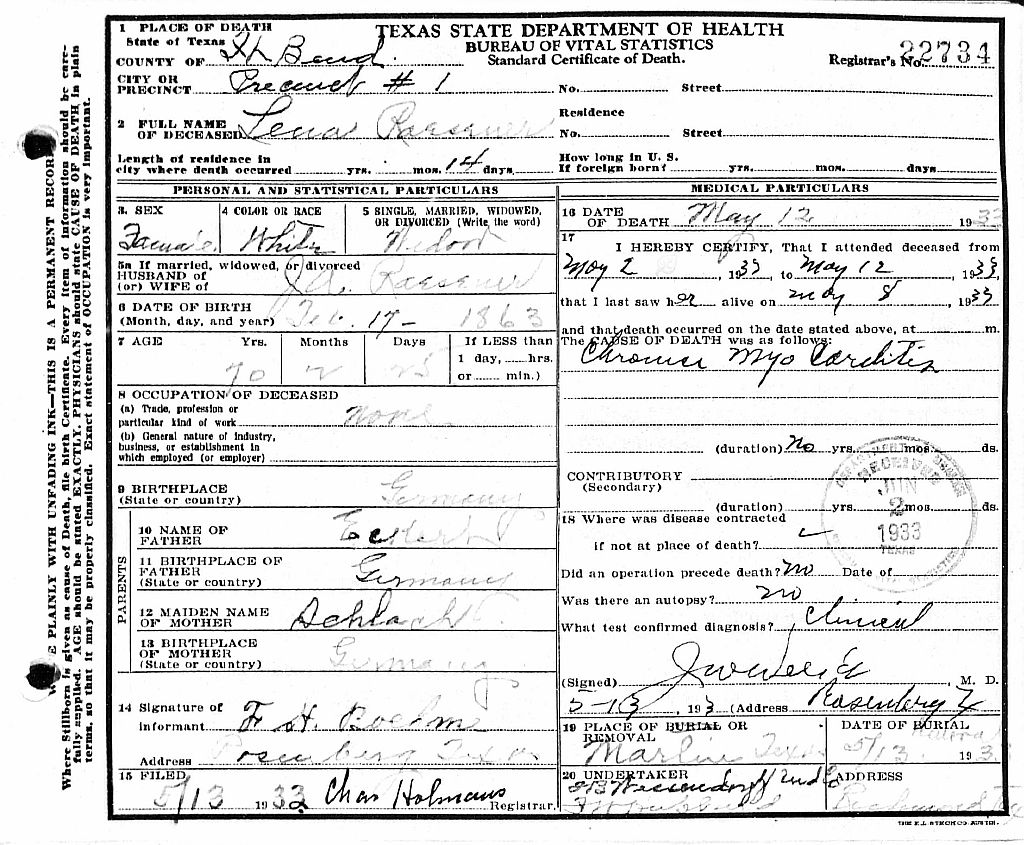 TEXAS STATE DEPARTMENT OF HEALTH
BUREAU OF VITAL STATISTICS
Standard Certificate of Death.
Registrar's No. 22734
1 PLACE OF DEATH
State of Texas
COUNTY OF Ft Bend.
CITY OR PRECINCT Precinct # 1
No. Street
2 FULL NAME OF DECEASED Lena Raessner
Residence
No. Street
Length of residence in city where death occurred yrs. mos. 14 days
How long in U. S. If foreign born? yrs. mos. days
PERSONAL AND STATISTICAL PARTICULARS
3. SEX
4 COLOR OR RACE White
5 SINGLE, MARRIED, WIDOWED, OR DIVORCED (Write the word)
5a If married, widowed, or divorced
HUSBAND OF
(or) WIFE OF Raessner
6 DATE OF BIRTH
(Month, day, and year) Feb. 17- 1863
7 AGE Yrs. Months Days If LESS than
1 day, hrs.
or min.)
70 2 25
8 OCCUPATION OF DECEASED
(a) Trade, profession or
particular kind of work None
(b) General nature of industry,
business, or establishment in
which employed (or employer)
9 BIRTHPLACE
(State or country) Germany
PARENTS
10 NAME OF FATHER Eckert
11 BIRTHPLACE OF FATHER
(State or country) Germany
12 MAIDEN NAME OF MOTHER
13 BIRTHPLACE OF MOTHER
(State or country) Germany
14 Signature of
informant F. H. Boehme
Address Rosenberg Texas
15 FILED
5/13 1933 Chas Holmans Registrar.
MEDICAL PARTICULARS
16 DATE OF DEATH May 12 1933
17
I HEREBY CERTIFY, That I attended deceased from
May 2, 1933, to May 12, 1933,
that I last saw her alive on May 8, 1933
and that death occurred on the date stated above, at m.
The CAUSE OF DEATH was as follows:
Chronic Myo Carditis
(duration) no yrs. mos. ds.
CONTRIBUTORY
(Secondary)
(duration) yrs. mos. ds.
18 Where was disease contracted
if not at place of death?
Did an operation precede death? no Date of
Was there an autopsy? no
What test confirmed diagnosis? Clinical
(Signed) M. D.
5-13, 193 (Address Rosenberg Tx
19 PLACE OF BURIAL OR REMOVAL
Marlin Texas
DATE OF BURIAL
5/13 193
20 UNDERTAKER
ADDRESS
Richmond
RECEIVED
JUN
2
1933
TEXAS
WRITE PLAINLY WITH UNFADING INK—THIS IS A PERMANENT RECORD
Where Stillborn is given as cause of Death, file birth Certificate. Every item of information should be care-
fully supplied. AGE should be stated EXACTLY. PHYSICIANS should state CAUSE OF DEATH in plain
terms, so that it may be properly classified. Exact statement of OCCUPATION is very important.
THE E.L. STECK CO. AUSTIN.